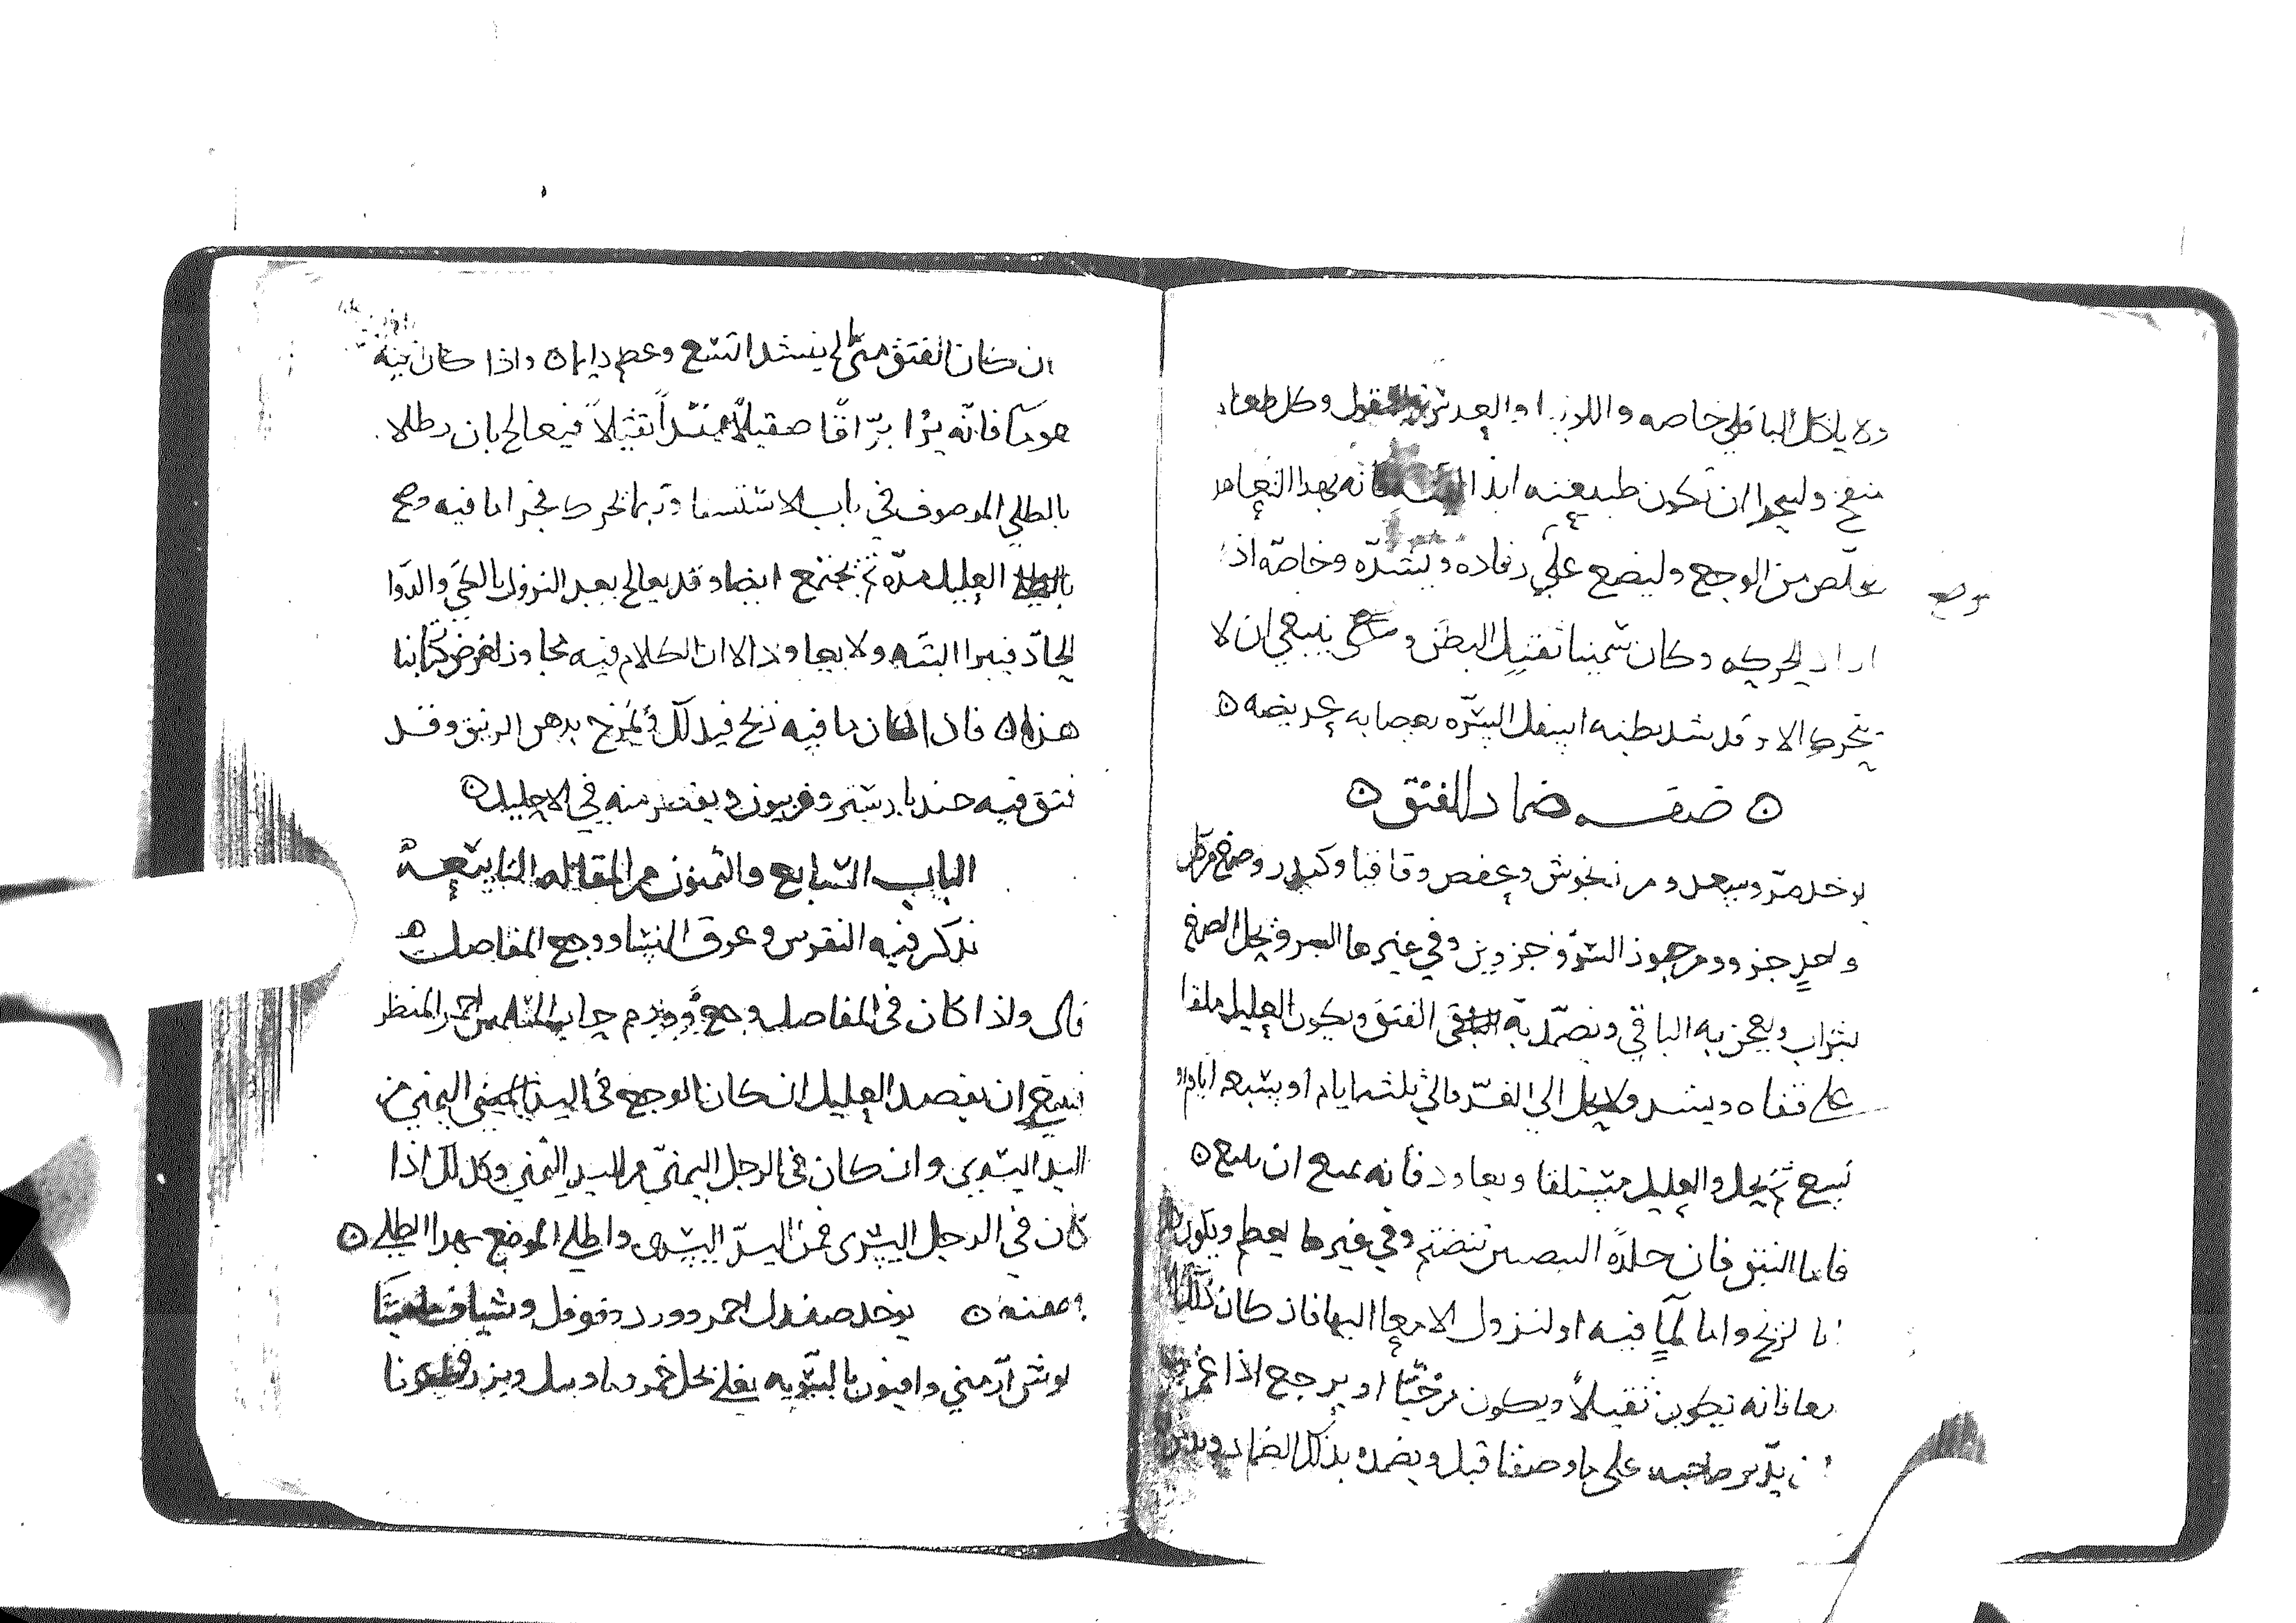 ولا ياكل الباقلي خاصه واللوبيا والعدس والبقول وكل طعام
منفخ وليجدا ان تكون طبيعته ابدا فانه بهدا التعاهد
يتخلص من الوجع وليضع على رفاده ويشده وخاصه اذا
اراد الحركه وكان سمينا ثقيل البطن و ينبغي ان لا
يتحرك الا وقد شد بطنه اسفل السره بعصابه عريضه ٥
٥ صفه ضماد الفتق ٥
يوخد مر وسعد ومرزنجوش وعفص وقاقيا وكندر وصمغ من كل
واحد جزو ومر جوز السرو جزوين وفي غيرها السرو يحل الصمغ
بشراب ويعجن به الباقي ويضمد به الفتق ويكون العليل ملقا
على قفاه ويشد ولا يحل الى الغد والى ثلثه ايام او سبعه ايام او
تسع ثم يحل والعليل مستلقا ويعاود فانه يمنع ان يتسع ٥
فاما الفتق فان جلدة البيضتين تنضم وفي غيرها يعظم ويكون
اما لريح واما لماٍ فيه او لنزول الامعا اليها فان كان ذلك
معا فانه يكون ثقيلاً ويكون مرخيا او يرجع اذا غمز
ان يدبر صاحبه على ما وصفنا قبل ويضمد بذلك الضماد
ان كان الفتق متى لم يشد اتسع وعظم دايما ٥ واذا كان فيه
هو ما فانه يرا براقا صقيلاً ثقيلاً فيعالج بان يطلا
بالطلي الموصوف في باب الاستسقا وربما تحرك فخرج ما فيه وصح
العليل مدّه ثم يجتمع ايضا وقد يعالج بعد النزول بالكي والدوا
الحاد فيبرا البتّه ولا يعاود الا ان الكلام فيه مجاوز لغرض كتابنا
هذا ٥ فاذا كان ما فيه ريح فيدلك ويمرخ بدهن الزنبق وقد
فتق فيه جندبادستر وفربيون ويقطر منه في الاحليل ٥
الباب السابع والثمنون من المقاله السابعه
يذكر فيه النقرس وعرق النسا ووجع المفاصل
قال واذا كان في المفاصل وجع وورم حار احمر المنظر
فينبغي ان يفصد العليل ان كان الوجع في اليد اليمنى من
اليد اليسرى وان كان في الرجل اليمنى من اليد اليمنى وكدلك اذا
كان في الرجل اليسرى فمن اليد اليسرى واطلي الموضع بهدا الطلي ٥
وصفته ٥ يوخد صندل احمر وورد وفوفل وشياف ماميتا
وبوش ارمني وافيون بالسويه بخل خمر